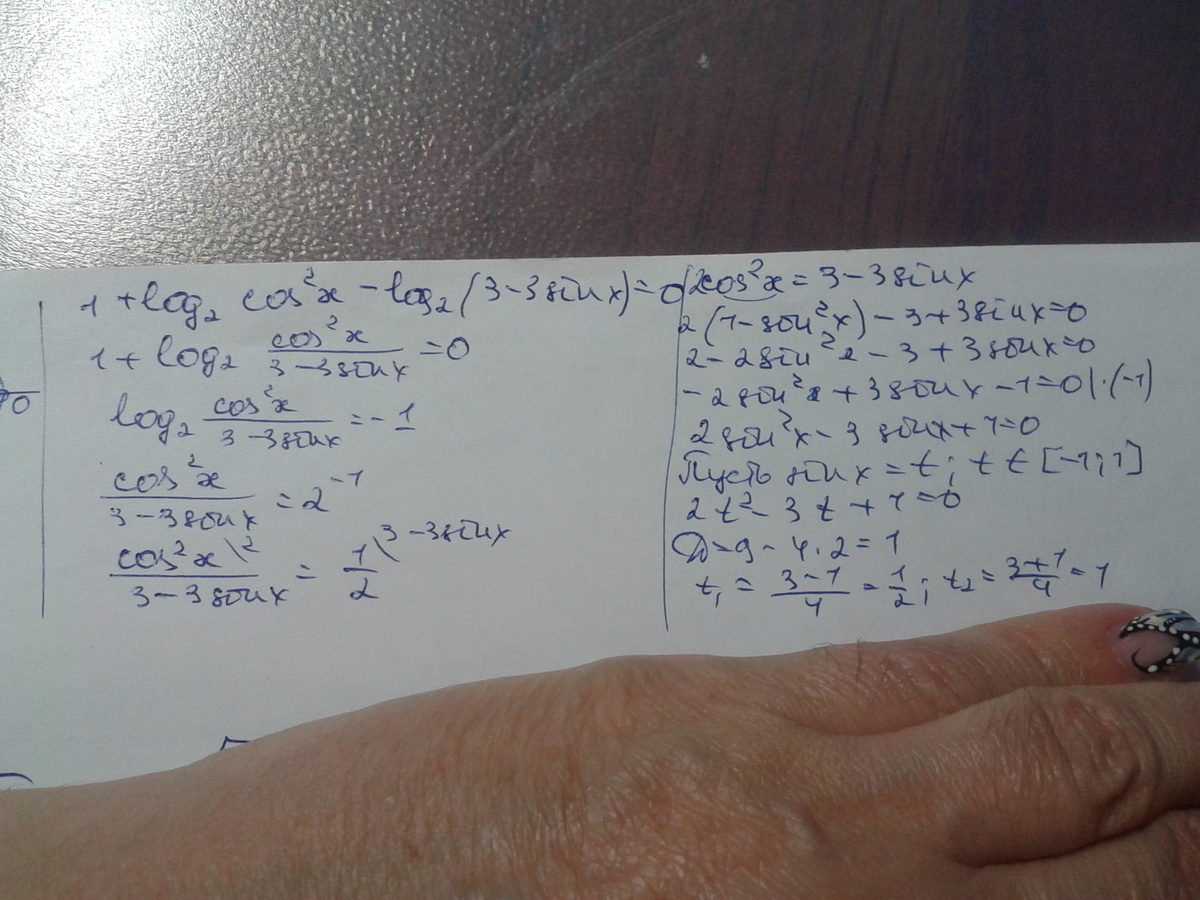 1 + log₂ cos²x − log₂(3 − 3sinx) = 0
1 + log₂ cos²x / (3 − 3sinx) = 0
log₂ cos²x / (3 − 3sinx) = −1
cos²x / (3 − 3sinx) = 2⁻¹
cos²x \2 / (3 − 3sinx) = 1/2 \3 − 3sinx
2cos²x = 3 − 3sinx
2(1 − sin²x) − 3 + 3sinx = 0
2 − 2sin²x − 3 + 3sinx = 0
−2sin²x + 3sinx − 1 = 0 | ·(−1)
2sin²x − 3sinx + 1 = 0
Пусть sinx = t; t ∈ [−1; 1]
2t² − 3t + 1 = 0
D = 9 − 4·2 = 1
t₁ = (3 − 1)/4 = 1/2; t₂ = (3 + 1)/4 = 1